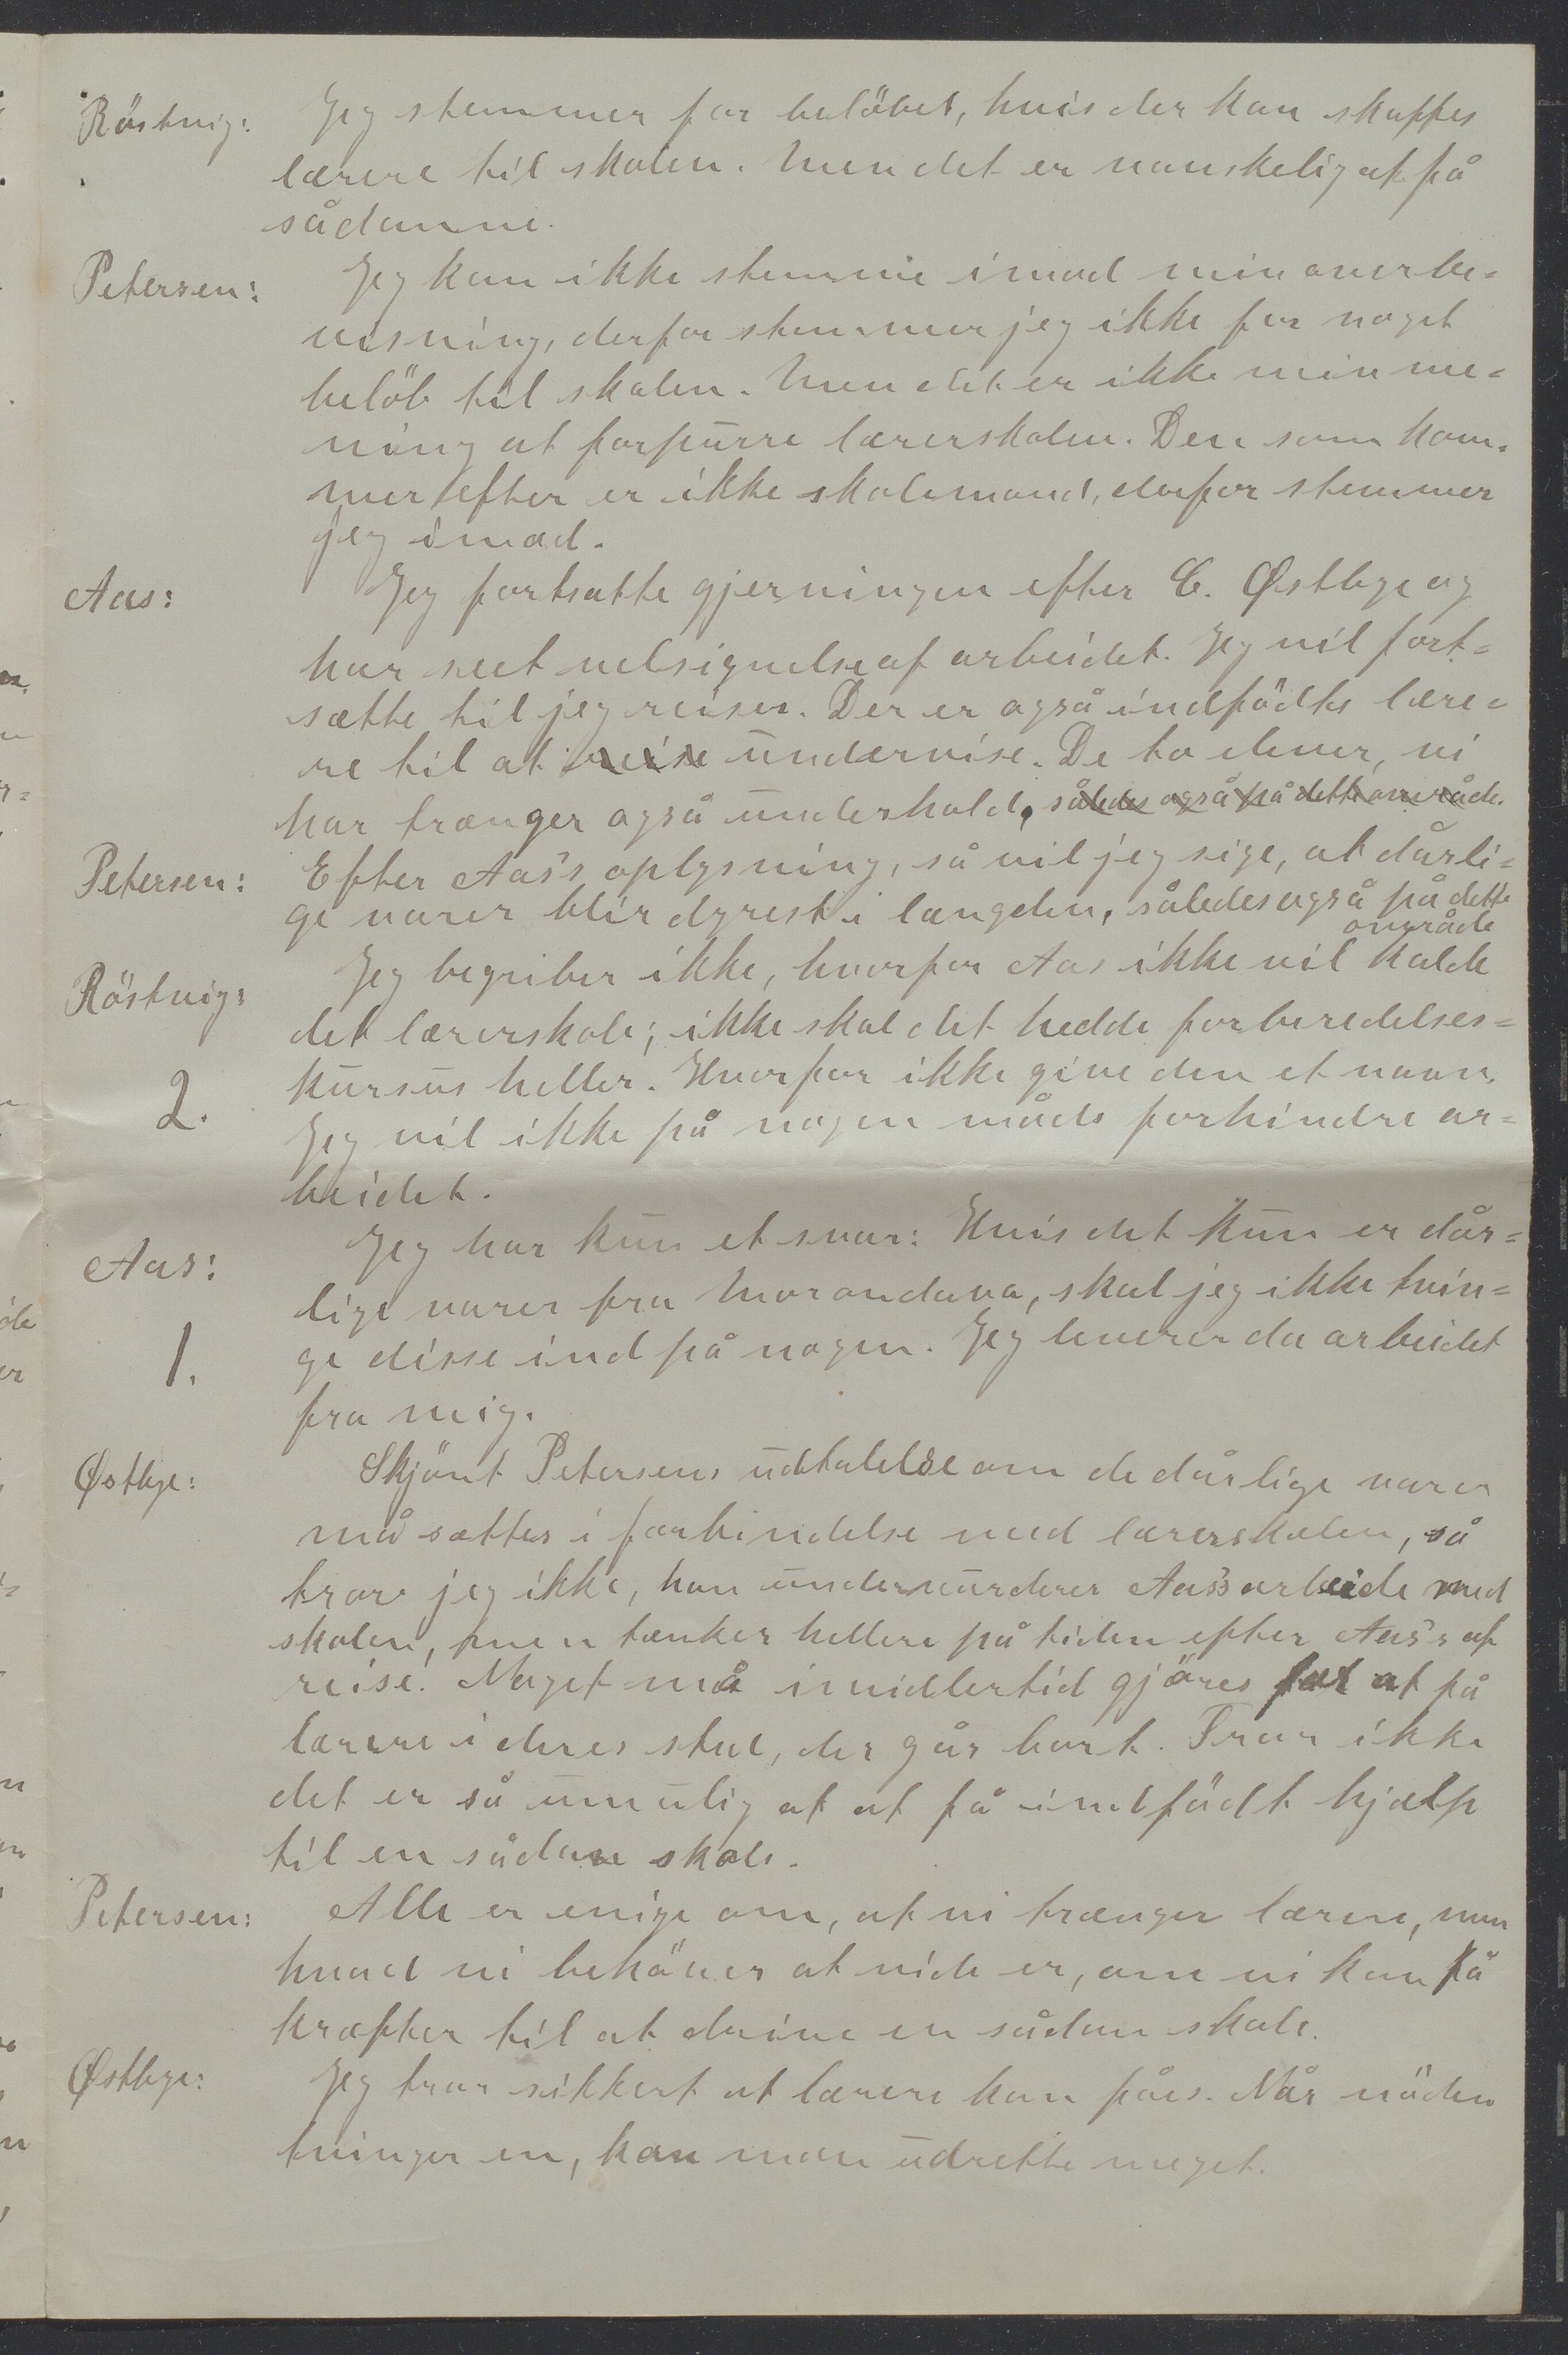 Röstvig: Jeg stemmer for belöbet, hvis der kan skaffes
lærere til skolen. Men det er vanskelig at få
sådanne.
Petersen: Jeg kan ikke stemme imod min overbe=
visning, derfor stemmer jeg ikke for noget
belöb til skolen. Men det er ikke min me=
ning at forpurre lærerskolen. Den som kom=
mer efter er ikke skolemand, derfor stemmer
jeg imod.
Aas: Jeg fortsatte gjerningen efter C. Østbye og
har seet velsignelse af arbeidet. Jeg vil fort=
sætte til jeg reiser. Der er også indfödte lære=
re til at reise undervise. De to elever, vi
har trænger også underhold, således også på dette område.
Petersen: Efter Aas's oplysning, så vil jeg sige, at dårli=
ge varer blir dyrest i længden, således også på dette
område
Röstvig: Jeg begriber ikke, hvorfor Aas ikke vil kalde
det lærerskole; ikke skal det hedde forberedelses=
kursus heller. Hvorfor ikke give den et navn.
2. Jeg vil ikke på nogen måde forhindre ar=
beidet.
Aas: Jeg har kun et svar: Hvis det kun er dår=
lige varer fra Morondava, skal jeg ikke tvin=
1. ge disse ind på nogen. Jeg leverer da arbeidet
fra mig.
Østbye: Skjönt Petersens udtalelse om de dårlige varer
må sættes i forbindelse med lærerskolen, så
tror jeg ikke, han undervurderer Aas's arbeide med
skolen, men tænker hellere på tiden efter Aas's af
reise. Noget må imidlertid gjöres for at få
lærere i deres sted, der går bort. Tror ikke
det er så umulig at at få indfödt hjælp
til en sådan skole.
Petersen: Alle er enige om, at vi trænger lærere, men
hvad vi behöver at vide er, om vi kan få
kræfter til at drive en sådan skole.
Østbye: Jeg tror sikkert at lærere kan fåes. Når nöden
tvinger en, kan man udrette meget.